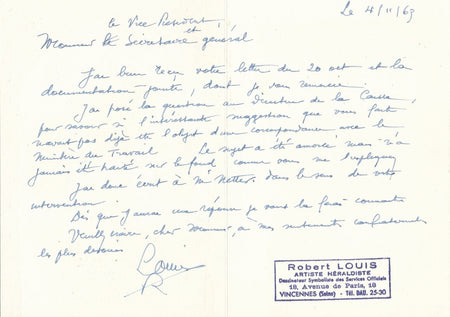 Le 4/11/69
le Vice Président, et
Monsieur le Secrétaire général
J'ai bien reçu votre lettre du 20 oct et la
documentation jointe, dont je vous remercie.
J'ai posé la question au Directeur de la Caisse,
pour savoir si l'intéressante suggestion que vous faites
n'avait pas déjà été l'objet d'une correspondance avec le
Ministre du Travail. Le sujet a été amorcé mais n'a
jamais été traité sur le fond, comme vous me l'expliquez
J'ai donc écrit à Mr Netter dans le sens de votre
intervention.
Dès que j'aurai une réponse je vous la ferai connaître
Veuillez croire, cher Monsieur, à mes sentiments confraternels
les plus dévoués
Louis
R
Robert LOUIS
ARTISTE HÉRALDISTE
Dessinateur Symboliste des Services Officiels
18, Avenue de Paris, 18
VINCENNES (Seine) - Tél. DAU. 25-30